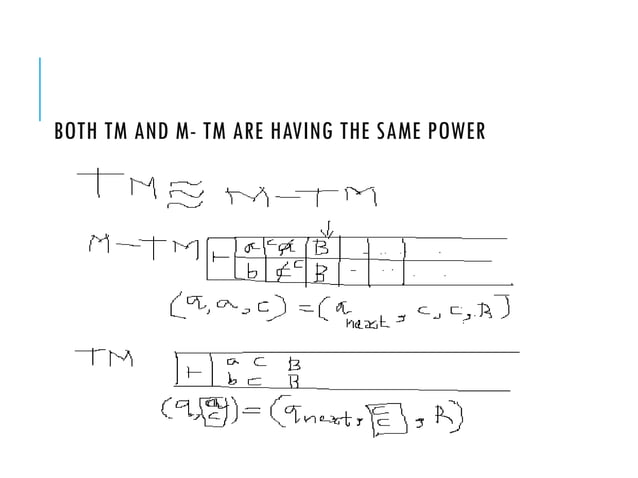 BOTH TM AND M- TM ARE HAVING THE SAME POWER
TM ≈ M-TM
M-TM ⊢ a c a B - . . .
b c c B - . . . .
(q, a, c) = (q next, c, c, R)
TM ⊢ a c B
b c B
(q, a c) = (q next, c c, R)